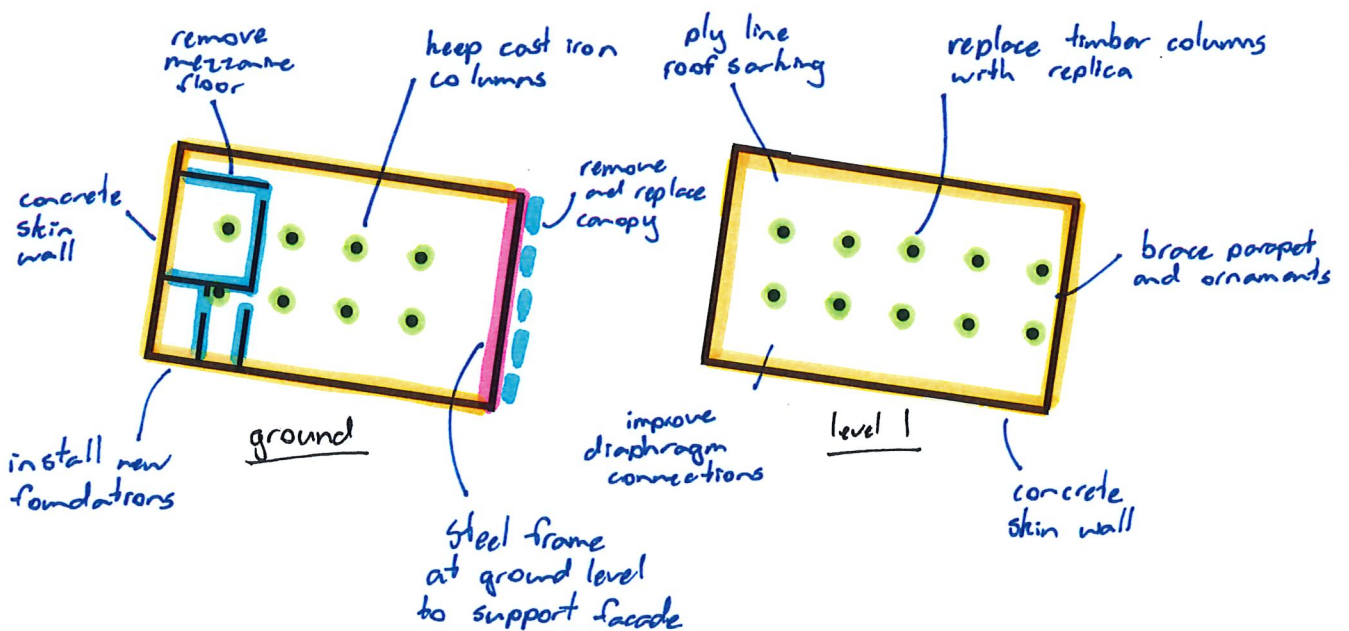 remove
mezzanine
floor
keep cast iron
columns
concrete
skin
wall
remove
and replace
canopy
install new
foundations
ground
steel frame
at ground level
to support facade
ply line
roof sarking
replace timber columns
with replica
brace parapet
and ornaments
improve
diaphragm
connections
level 1
concrete
skin wall